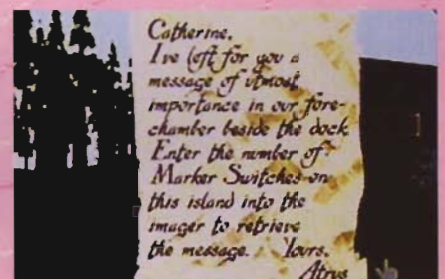 Catherine,
I've left for you a
message of utmost
importance in our fore-
chamber beside the dock.
Enter the number of
Marker Switches on
this island into the
imager to retrieve
the message. Yours,
Atrus